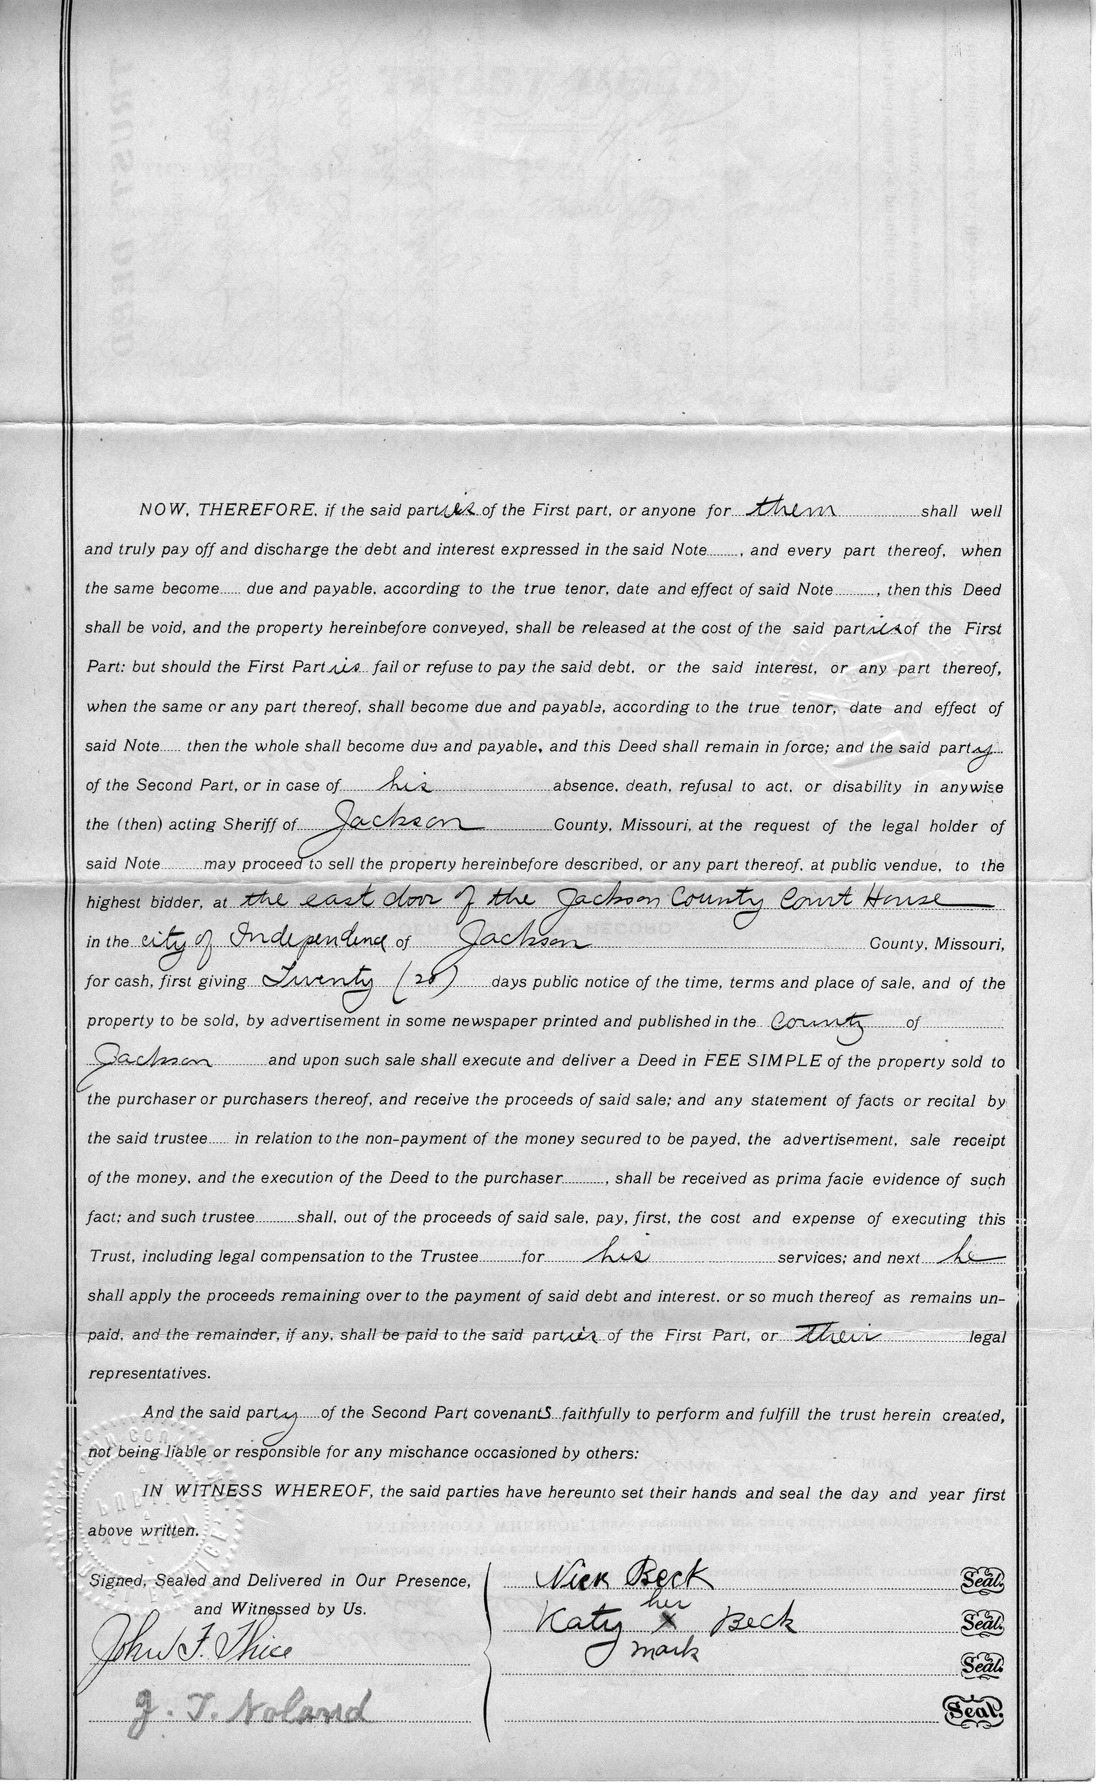 NOW, THEREFORE, if the said parties of the First part, or anyone for them shall well
and truly pay off and discharge the debt and interest expressed in the said Note, and every part thereof, when
the same become due and payable, according to the true tenor, date and effect of said Note, then this Deed
shall be void, and the property hereinbefore conveyed, shall be released at the cost of the said parties of the First
Part: but should the First Parties fail or refuse to pay the said debt, or the said interest, or any part thereof,
when the same or any part thereof, shall become due and payable, according to the true tenor, date and effect of
said Note then the whole shall become due and payable, and this Deed shall remain in force; and the said party
of the Second Part, or in case of his absence, death, refusal to act, or disability in anywise
the (then) acting Sheriff of Jackson County, Missouri, at the request of the legal holder of
said Note may proceed to sell the property hereinbefore described, or any part thereof, at public vendue, to the
highest bidder, at the east door of the Jackson County Court House
in the city of Independence of Jackson County, Missouri,
for cash, first giving Twenty (20) days public notice of the time, terms and place of sale, and of the
property to be sold, by advertisement in some newspaper printed and published in the County of
Jackson and upon such sale shall execute and deliver a Deed in FEE SIMPLE of the property sold to
the purchaser or purchasers thereof, and receive the proceeds of said sale; and any statement of facts or recital by
the said trustee in relation to the non-payment of the money secured to be payed, the advertisement, sale receipt
of the money, and the execution of the Deed to the purchaser, shall be received as prima facie evidence of such
fact; and such trustee shall, out of the proceeds of said sale, pay, first, the cost and expense of executing this
Trust, including legal compensation to the Trustee for his services; and next he
shall apply the proceeds remaining over to the payment of said debt and interest, or so much thereof as remains un-
paid, and the remainder, if any, shall be paid to the said parties of the First Part, or their legal
representatives.
And the said party of the Second Part covenants faithfully to perform and fulfill the trust herein created,
not being liable or responsible for any mischance occasioned by others:
IN WITNESS WHEREOF, the said parties have hereunto set their hands and seal the day and year first
above written.
Signed, Sealed and Delivered in Our Presence,
and Witnessed by Us.
John F. Thice
J. T. Noland
Nick Beck Seal.
her
Katy x Beck Seal.
mark
Seal.
Seal.